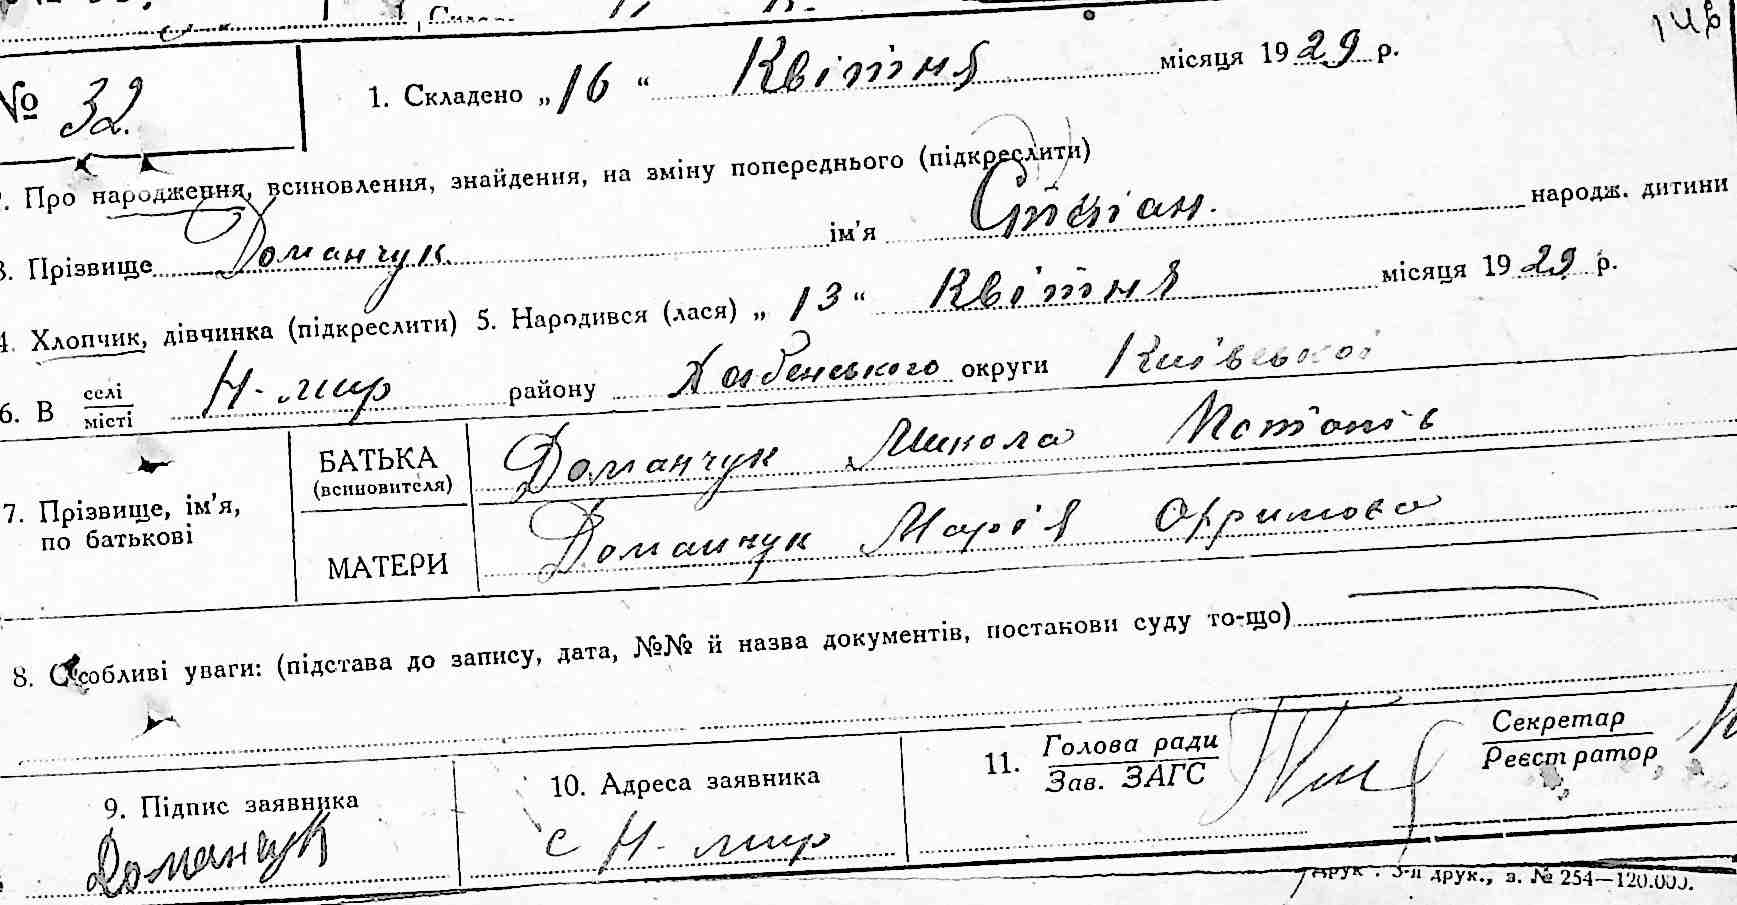 146
№ 32.
1. Складено „16“ Квітня місяця 1929 р.
2. Про народження, всиновлення, знайдення, на зміну попереднього (підкреслити)
3. Прізвище Доманчук ім’я Степан. народж. дитини
4. Хлопчик, дівчинка (підкреслити) 5. Народився (лася) „13“ Квітня місяця 1929 р.
6. В селі місті Н-мир району Хабенського округи Київської
7. Прізвище, ім’я, по батькові
БАТЬКА (всиновителя) Доманчук Микола Потапів
МАТЕРИ Доманчук Марія Охримова
8. Особливі уваги: (підстава до запису, дата, №№ й назва документів, постанови суду то-що)
9. Підпис заявника
Доманчук
10. Адреса заявника
с Н-мир
11. Голова ради
Зав. ЗАГС
Секретар
Реєстратор
друк., з. № 254—120.000.